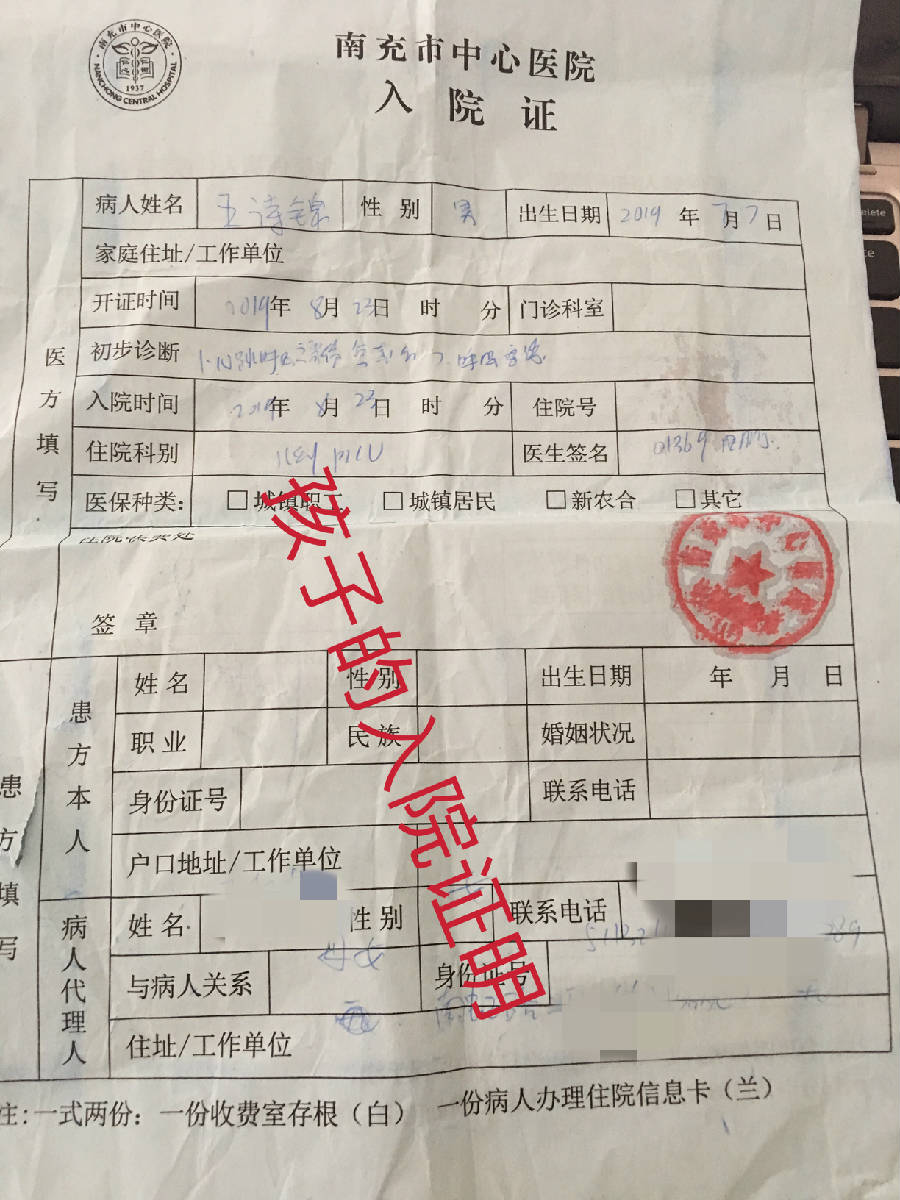 南充市中心医院
NANCHONG CENTRAL HOSPITAL
1937
南充市中心医院
入院证
医方填写
病人姓名 王诗锦 性别 男 出生日期 2019年7月7日
家庭住址/工作单位
开证时间 2019年8月23日 时 分 门诊科室
初步诊断 1.心跳呼吸骤停 2.呼吸衰竭
入院时间 2019年8月23日 时 分 住院号
住院科别 儿科PICU 医生签名 01369
医保种类: □城镇职工 □城镇居民 □新农合 □其它
住院收费处
签章
患方填写
患方本人
姓名 性别 出生日期 年 月 日
职业 民族 婚姻状况
身份证号 联系电话
户口地址/工作单位
病人代理人
姓名 性别 联系电话
与病人关系 母女 身份证号
住址/工作单位
注:一式两份:一份收费室存根(白) 一份病人办理住院信息卡(兰)
孩子的入院证明
delete